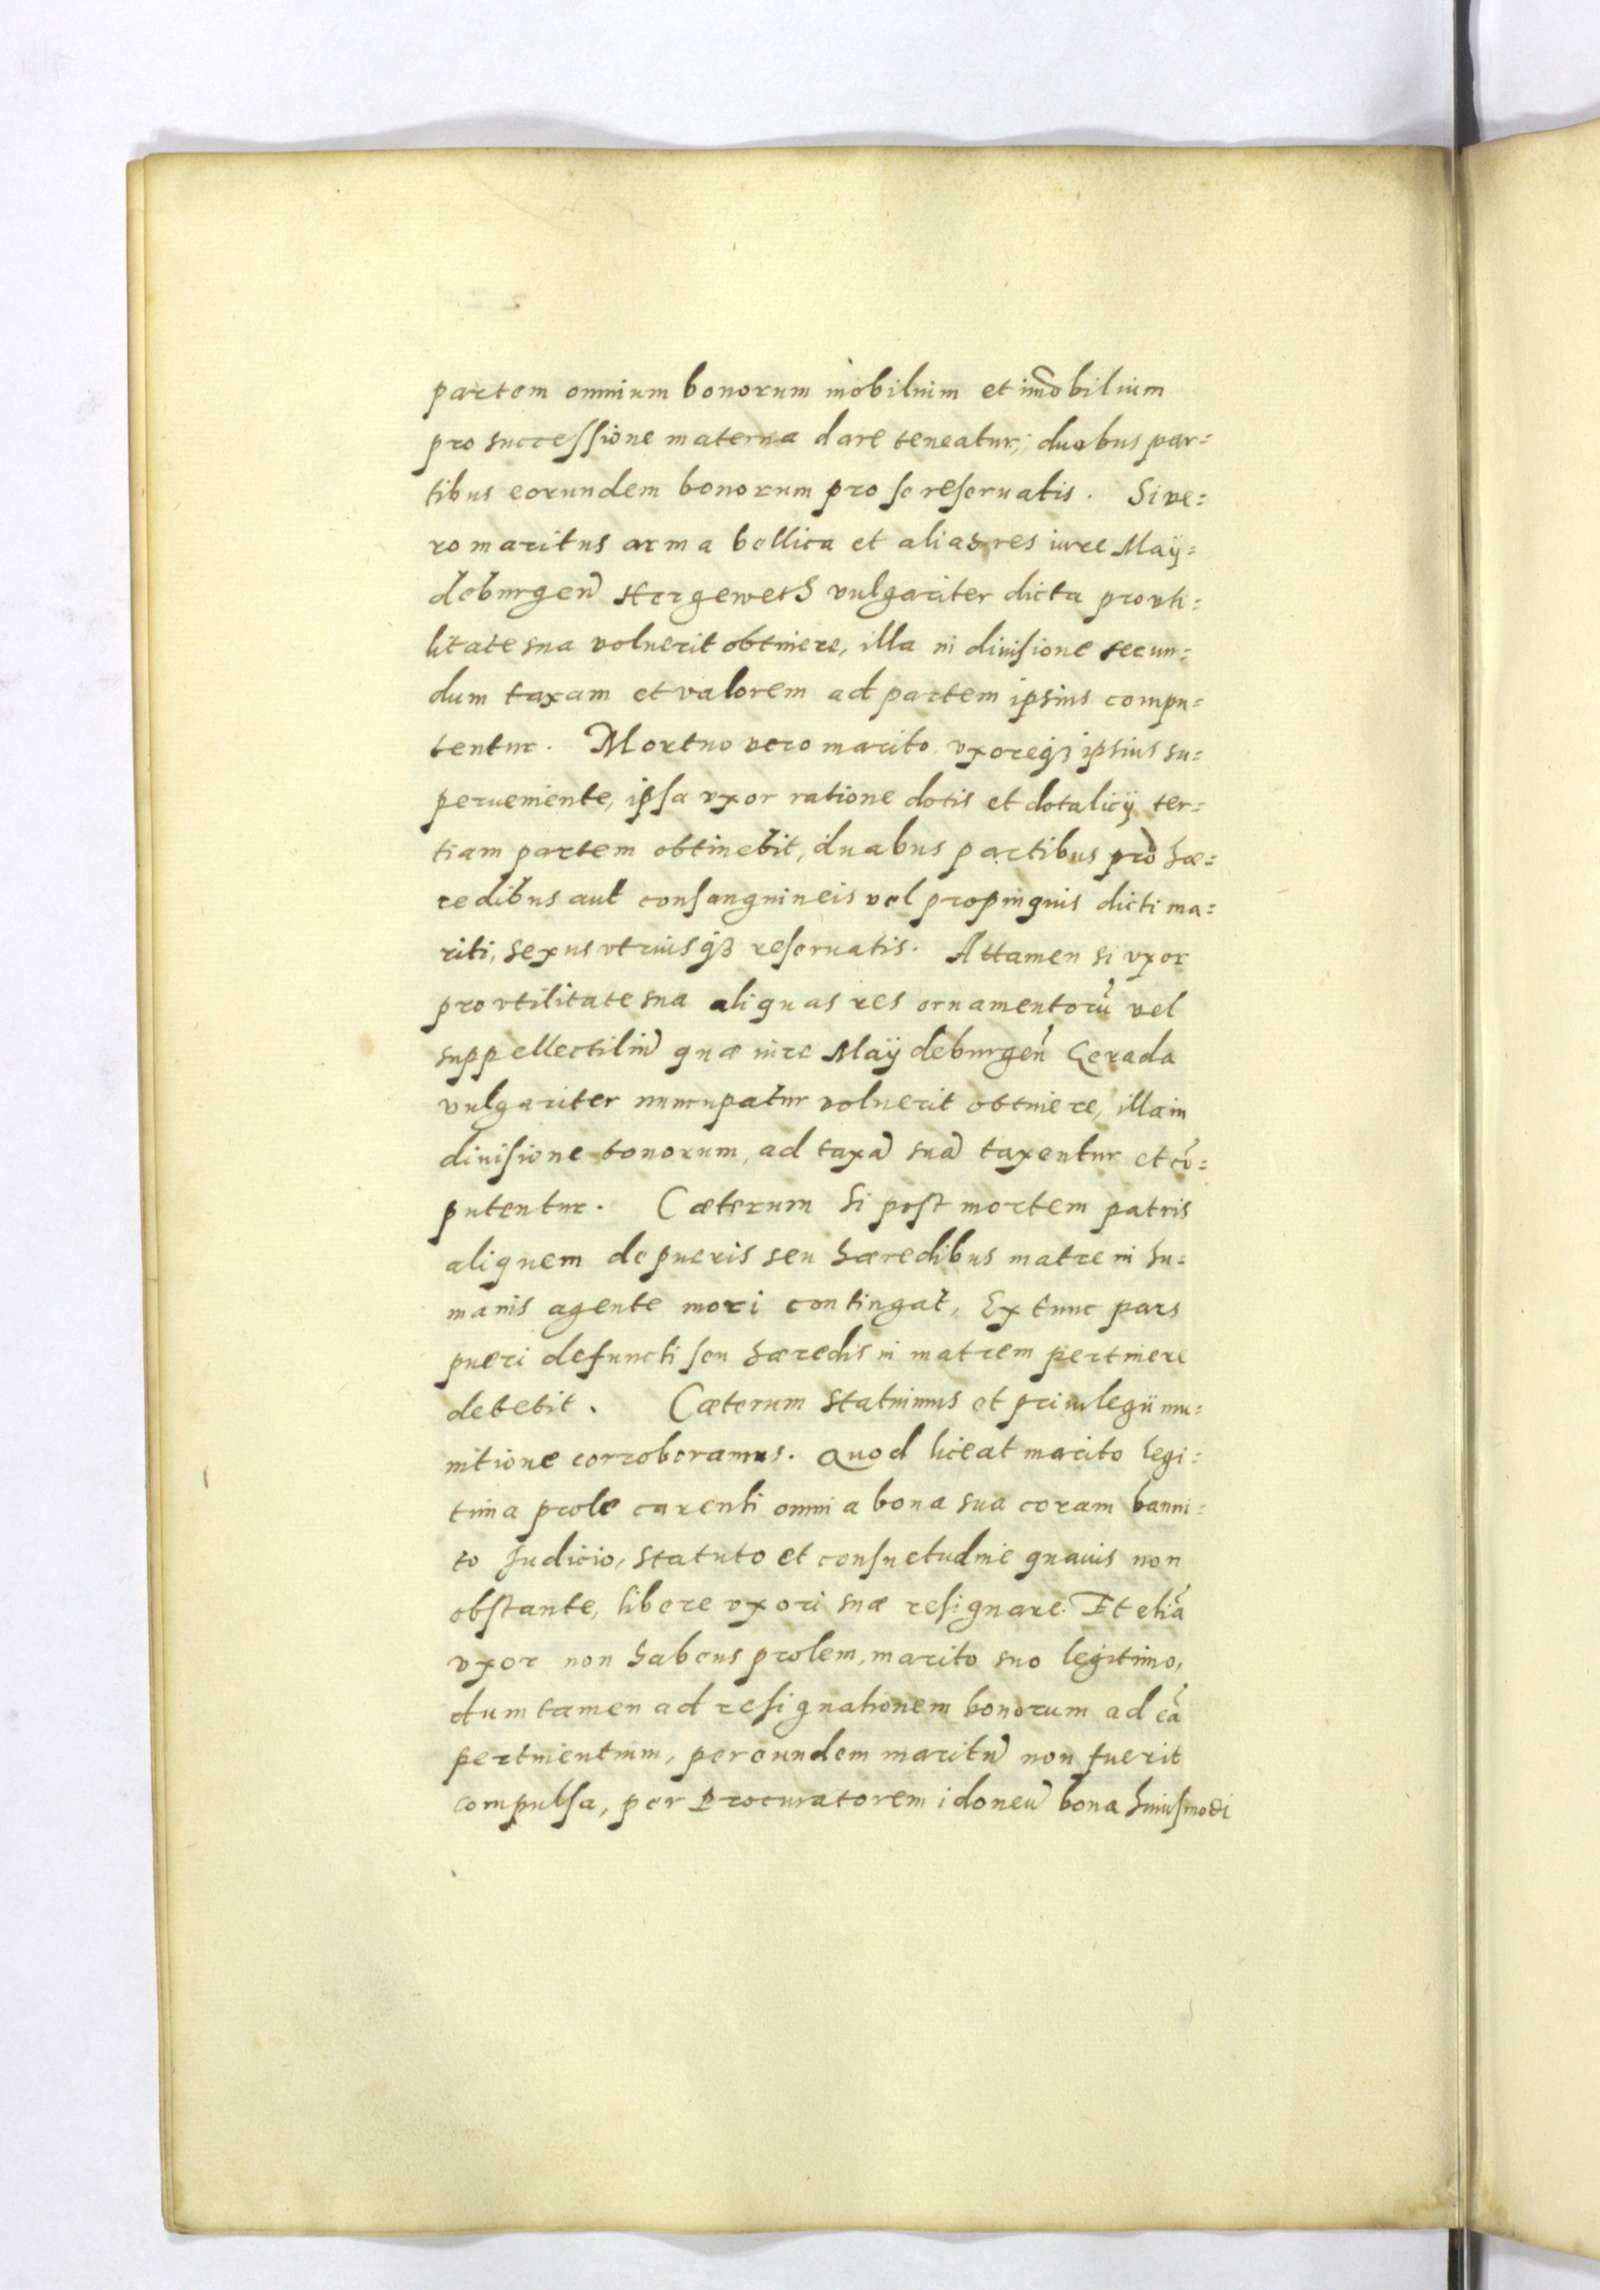 partem omnium bonorum mobilium et im̃obilium
pro successione materna dare teneatur; duabus par=
tibus eorundem bonorum pro se reseruatis. Si ve=
ro maritus arma bellica et alias res iure Maÿ=
deburgen̄ Hergeweth vulgariter dicta pro vti=
litate sua voluerit obtinere, illa in diuisione secun=
dum taxam et valorem ad partem ipsius compu=
tentur. Mortuo vero marito vxoreqꝫ ipsius su=
perueniente, ipsa vxor ratione dotis et dotalicÿ ter=
tiam partem obtinebit, duabus partibus pro hæ=
redibus aut consanguineis vel propinquis dicti ma=
riti, sexus vtriusqꝫ reseruatis. Attamen si vxor
pro vtilitate sua aliquas res ornamentorū vel
suppellectiliū quæ iure Maÿdeburgen̄ Gerada
vulgariter nuncupatur voluerit obtinere, illa in
diuisione bonorum, ad taxā suā taxentur et cō=
putentur. Cæterum Si post mortem patris
aliquem de pueris seu hæredibus matre in hu=
manis agente mori contingat, Ex tunc pars
pueri defuncti seu hæredis in matrem pertinere
debebit. Cæterum statuimus et priuilegii mu=
nitione corroboramus. Quod liceat marito legi=
tima prole carenti omnia bona sua coram banni=
to Judicio, statuto et consuetudine quauis non
obstante, libere vxori suæ resignare. Et etiā
vxor non habens prolem, marito suo legitimo,
dum tamen ad resignationem bonorum ad eā
pertinentium, per eundem maritū non fuerit
compulsa, per Procuratorem idoneū bona huiusmodi